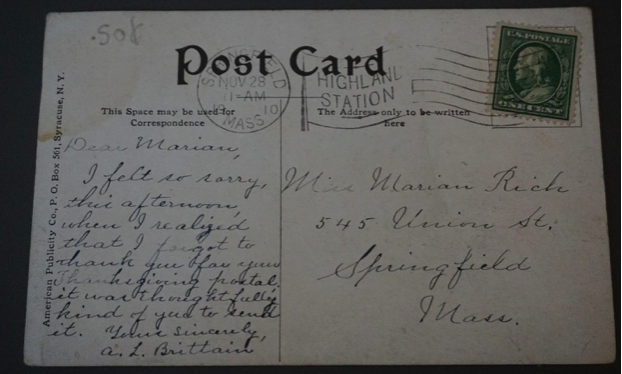 .50¢
Post Card
U.S. POSTAGE
ONE CENT
SPRINGFIELD
NOV 28
11-AM
1910
MASS
HIGHLAND
STATION
This Space may be used for
Correspondence
The Address only to be written
here
American Publicity Co., P. O. Box 561, Syracuse, N. Y.
Dear Marian,
I felt so sorry,
this afternoon,
when I realized
that I forgot to
thank you for your
Thanksgiving postal.
it was thoughtfully
kind of you to send
it. Yours sincerely,
A. L. Brittain
Miss Marian Rich
545 Union St.
Springfield
Mass.